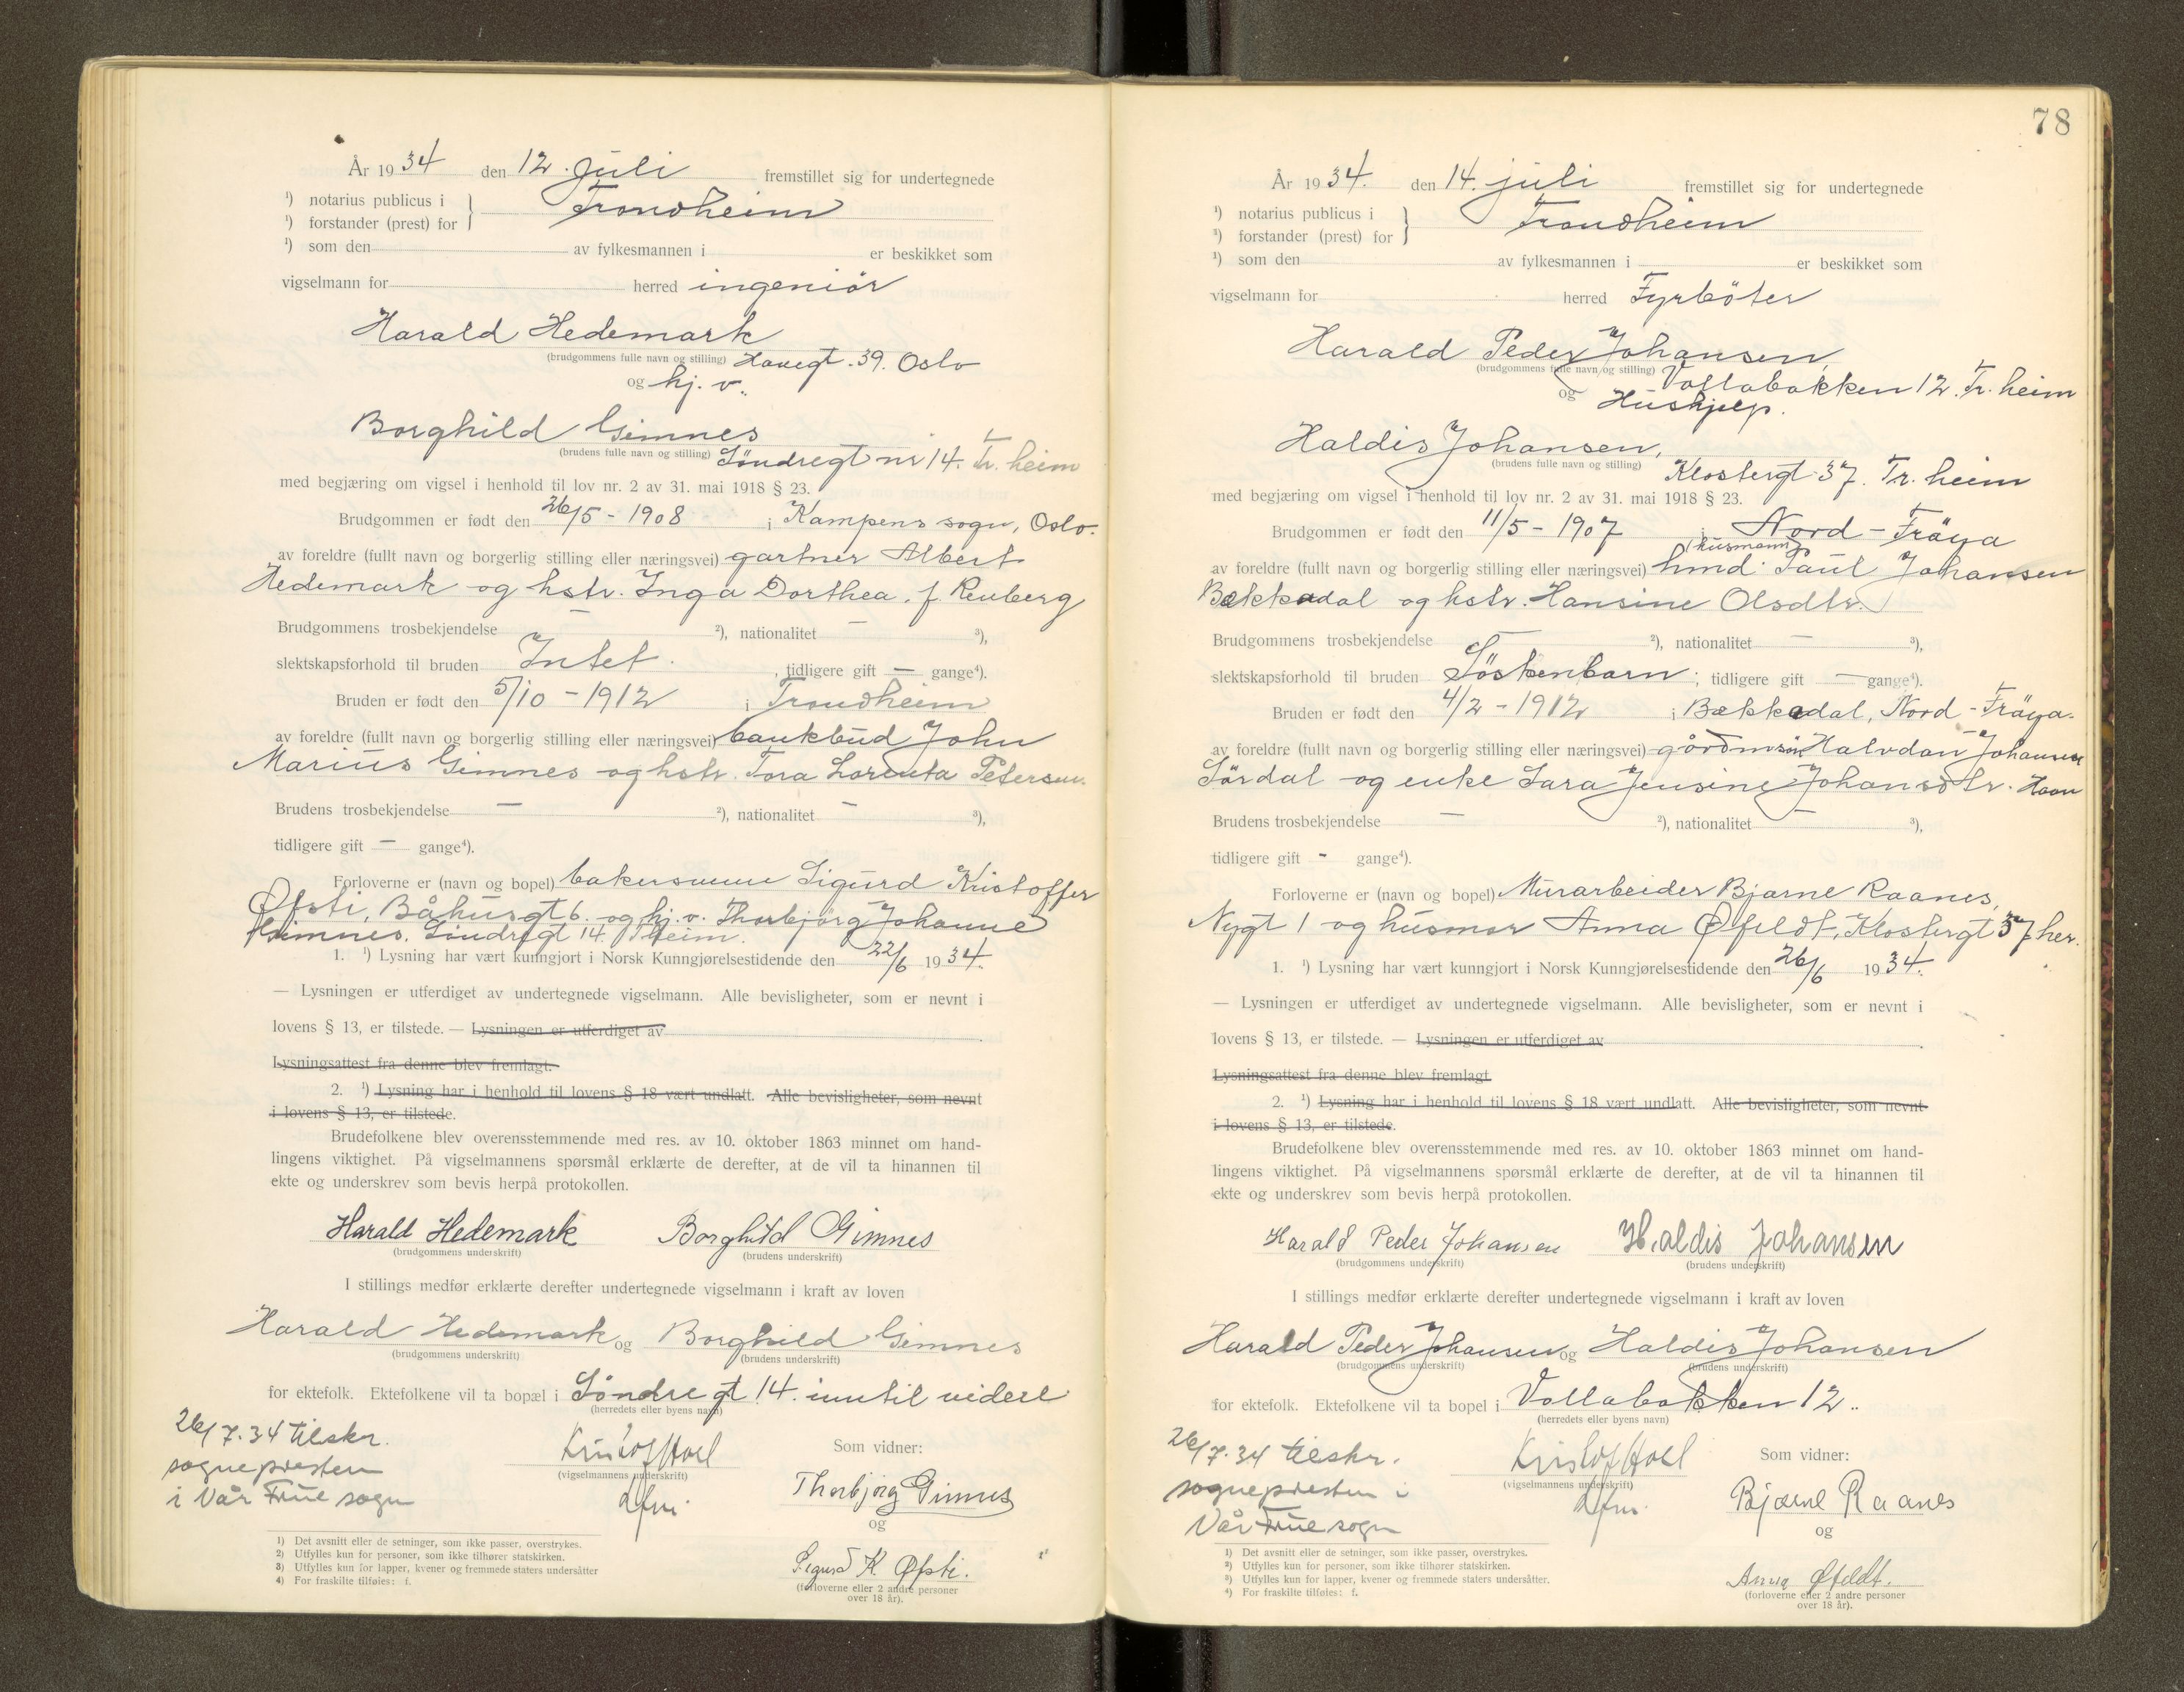 År 1934 den 12. Juli fremstillet sig for undertegnede
¹) notarius publicus i
¹) forstander (prest) for
Trondheim
¹) som den av fylkesmannen i er beskikket som
vigselmann for herred ingeniör
Harald Hedemark
(brudgommens fulle navn og stilling) Havegt. 39. Oslo
og hj. v.
Borghild Gimnes
(brudens fulle navn og stilling) Söndregt nr 14. Tr. heim
med begjæring om vigsel i henhold til lov nr. 2 av 31. mai 1918 § 23.
Brudgommen er født den 26/5 - 1908 i Kampens sogn, Oslo.
av foreldre (fullt navn og borgerlig stilling eller næringsvei) gartner Albert
Hedemark og hstr. Inga Dorthea. f. Renberg
Brudgommens trosbekjendelse — ²), nationalitet — ³),
slektskapsforhold til bruden Intet. , tidligere gift — gange⁴).
Bruden er født den 5/10 - 1912 i Trondheim
av foreldre (fullt navn og borgerlig stilling eller næringsvei) bankbud John
Marius Gimnes og hstr. Tora Lorenta Petersen.
Brudens trosbekjendelse — ²), nationalitet — ³),
tidligere gift — gange⁴).
Forloverne er (navn og bopel) bakersvenn Sigurd Kristoffer
Øfsti, Båhusgt 6. og hj. v. Thorbjörg Johanne
Gimnes. Söndregt 14. Tr heim.
1. ¹) Lysning har vært kunngjort i Norsk Kunngjørelsestidende den 22/6 1934.
— Lysningen er utferdiget av undertegnede vigselmann. Alle bevisligheter, som er nevnt i
lovens § 13, er tilstede. — Lysningen er utferdiget av
Lysningsattest fra denne blev fremlagt.
2. ¹) Lysning har i henhold til lovens § 18 vært undlatt. Alle bevisligheter, som nevnt
i lovens § 13, er tilstede.
Brudefolkene blev overensstemmende med res. av 10. oktober 1863 minnet om hand-
lingens viktighet. På vigselmannens spørsmål erklærte de derefter, at de vil ta hinannen til
ekte og underskrev som bevis herpå protokollen.
Harald Hedemark Borghild Gimnes
(brudgommens underskrift) (brudens underskrift)
I stillings medfør erklærte derefter undertegnede vigselmann i kraft av loven
Harald Hedemark og Borghild Gimnes
(brudgommens underskrift) (brudens underskrift)
for ektefolk. Ektefolkene vil ta bopæl i Söndregt 14. inntil videre
(herredets eller byens navn)
26/7. 34 tilskr.
sognepresten
i Vår Frue sogn
Kristof Hoel
(vigselmannens underskrift)
Som vidner:
Thorbjørg Gimnes
og
Sigurd K. Øfsti.
(forloverne eller 2 andre personer
over 18 år).
1) Det avsnitt eller de setninger, som ikke passer, overstrykes.
2) Utfylles kun for personer, som ikke tilhører statskirken.
3) Utfylles kun for lapper, kvener og fremmede staters undersåtter
4) For fraskilte tilføies: f.
78
År 1934. den 14. juli fremstillet sig for undertegnede
¹) notarius publicus i
¹) forstander (prest) for
Trondheim
¹) som den av fylkesmannen i er beskikket som
vigselmann for herred Fyrböter
Harald Peder Johansen,
(brudgommens fulle navn og stilling) Vollabakken 12. Tr. heim
og Hushjelp.
Haldis Johansen,
(brudens fulle navn og stilling) Klostergt 37. Tr. heim
med begjæring om vigsel i henhold til lov nr. 2 av 31. mai 1918 § 23.
Brudgommen er født den 11/5 - 1907 i Nord-Fröya
(husmann)
av foreldre (fullt navn og borgerlig stilling eller næringsvei) hmd. Paul Johansen
Bækkadal og hstr. Hansine Olsdtr.
Brudgommens trosbekjendelse — ²), nationalitet — ³),
slektskapsforhold til bruden Söskenbarn; tidligere gift — gange⁴).
Bruden er født den 4/2 - 1912 i Bækkadal, Nord-Fröya.
av foreldre (fullt navn og borgerlig stilling eller næringsvei) Halvdan Johansen
Sördal og enke Sara Jensine Johansdtr.
Brudens trosbekjendelse — ²), nationalitet — ³),
tidligere gift - gange⁴).
Forloverne er (navn og bopel) Murarbeider Bjarne Raanes,
Nygt 1 og husmor Anna Øfeldt, Klostergt 37 her.
1. ¹) Lysning har vært kunngjort i Norsk Kunngjørelsestidende den 26/6 1934.
— Lysningen er utferdiget av undertegnede vigselmann. Alle bevisligheter, som er nevnt i
lovens § 13, er tilstede. — Lysningen er utferdiget av
Lysningsattest fra denne blev fremlagt.
2. ¹) Lysning har i henhold til lovens § 18 vært undlatt. Alle bevisligheter, som nevnt
i lovens § 13, er tilstede.
Brudefolkene blev overensstemmende med res. av 10. oktober 1863 minnet om hand-
lingens viktighet. På vigselmannens spørsmål erklærte de derefter, at de vil ta hinannen til
ekte og underskrev som bevis herpå protokollen.
Harald Peder Johansen Haldis Johansen
(brudgommens underskrift) (brudens underskrift)
I stillings medfør erklærte derefter undertegnede vigselmann i kraft av loven
Harald Peder Johansen og Haldis Johansen
(brudgommens underskrift) (brudens underskrift)
for ektefolk. Ektefolkene vil ta bopel i Vollabakken 12.
(herredets eller byens navn)
26/7. 34 tilskr.
sognepresten i
Vår Frue sogn
Kristof Hoel
(vigselmannens underskrift)
Som vidner:
Bjarne Raanes
og
Anna Øfeldt.
(forloverne eller 2 andre personer
over 18 år).
1) Det avsnitt eller de setninger, som ikke passer, overstrykes.
2) Utfylles kun for personer, som ikke tilhører statskirken.
3) Utfylles kun for lapper, kvener og fremmede staters undersåtter.
4) For fraskilte tilføies: f.